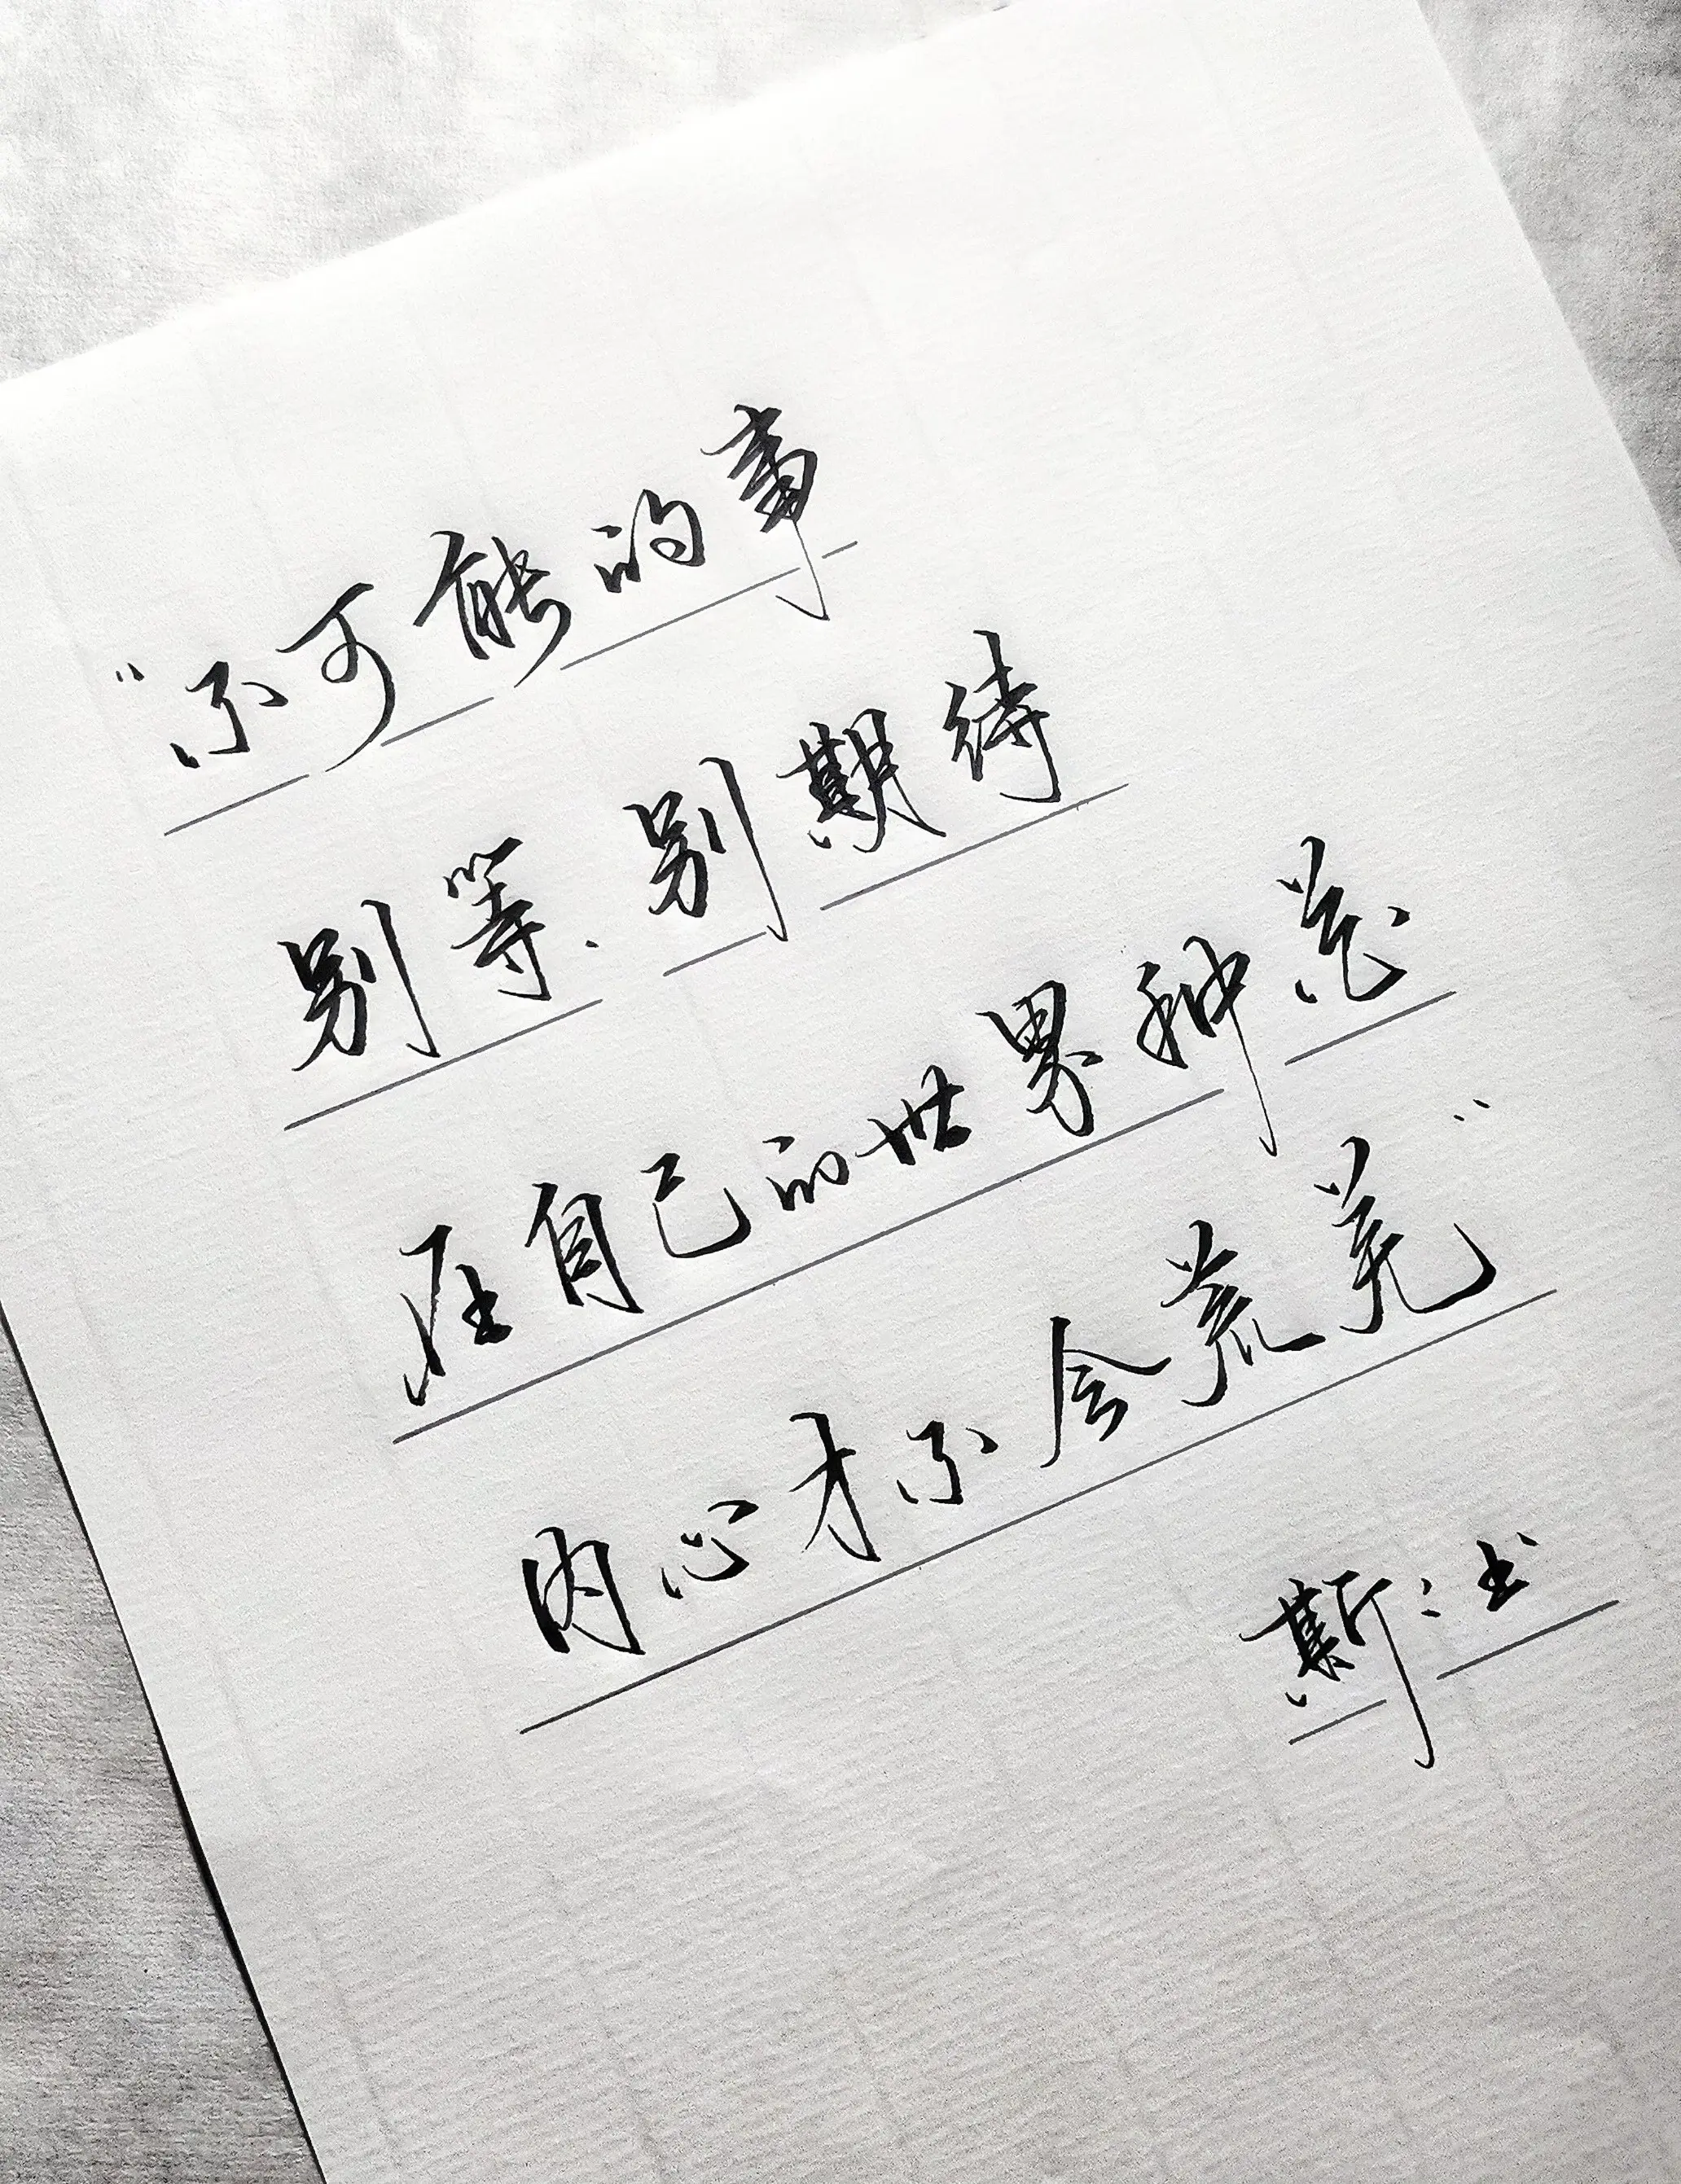 “不可能的事
别等.别期待
在自己的世界种花
内心才不会荒芜”
斯:书